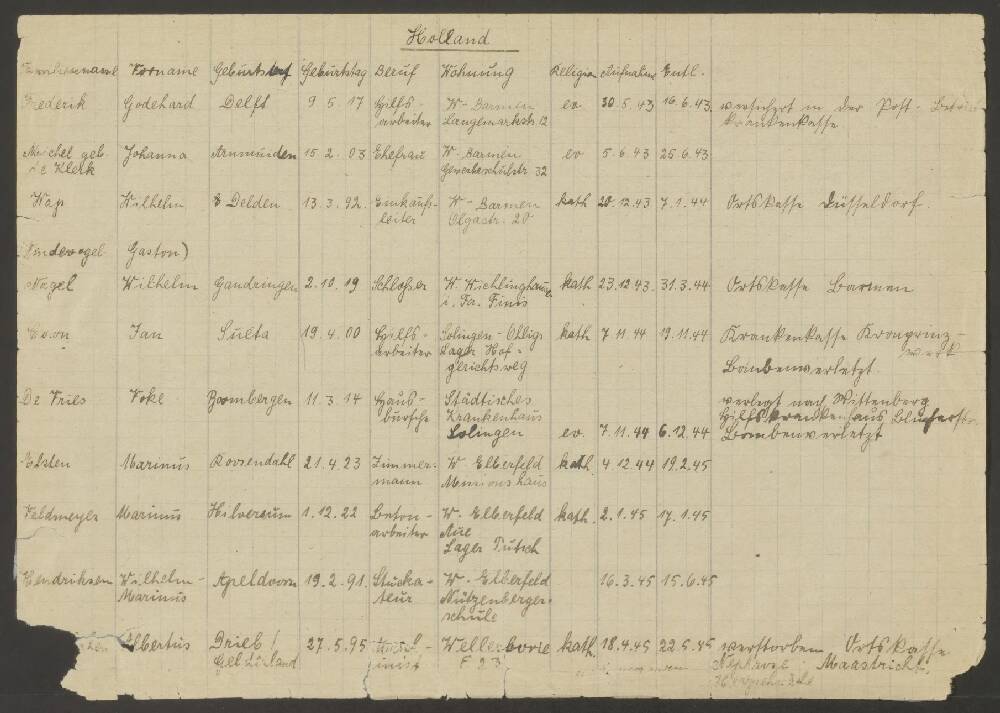 Holland
Vorname Geburtsort Geburtstag Beruf Wohnung Religion Aufnahme Entl.
Frederik Godehard Delft 9.5.17 Hilfs- W-Barmen ev. 30.5.43 16.6.43. versichert in der Post-
arbeiter Langemarkstr. 12 krankenkasse
Michel geb. Johanna Arnmuiden 15.2.03 Ehefrau W.-Barmen ev 5.6.43 25.6.43
de Klerk Gewerbeschulstr 32
Wap Wilhelm Delden 13.3.92. Einkaufs- W-Barmen kath 20.12.43 7.1.44 Ortskasse Düsseldorf.
leiter Olgastr. 20
Gaston)
Nagel Wilhelm Gandringen 2.10.19 Schlosser W. Wichlinghausen kath 23.12.43 31.3.44 Ortskasse Barmen
i. Fa. Finis
Jan Sulta 19.4.00 Hilfs- Solingen-Ohligs kath 7.11.44 19.11.44 Krankenkasse Kronprinz-
arbeiter Lager Hof- werk
gerichtsweg Bombenverletzt
De Fries Foke Boombergen 11.3.14 Haus- Städtisches verlegt nach Wittenberg
bursche Krankenhaus Hilfskrankenhaus
Solingen ev. 7.11.44 6.12.44 Bombenverletzt
Marinus Roosendahl 21.4.23 Zimmer- W Elberfeld kath 4.12.44 19.2.45
mann Missionshaus
Feldmeyer Marinus Hilversum 1.12.22 Beton- W. Elberfeld kath. 2.1.45 17.1.45
arbeiter Aue
Lager Putsch
Hendriksen Wilhelm- Apeldoorn 19.2.91. Stucka- W. Elberfeld 16.3.45 15.6.45
Marinus teur Nützenberger-
schule
Albertus 27.5.95 kath 18.4.45 22.5.45 verstorben Ortskasse
F 23 Maastricht.